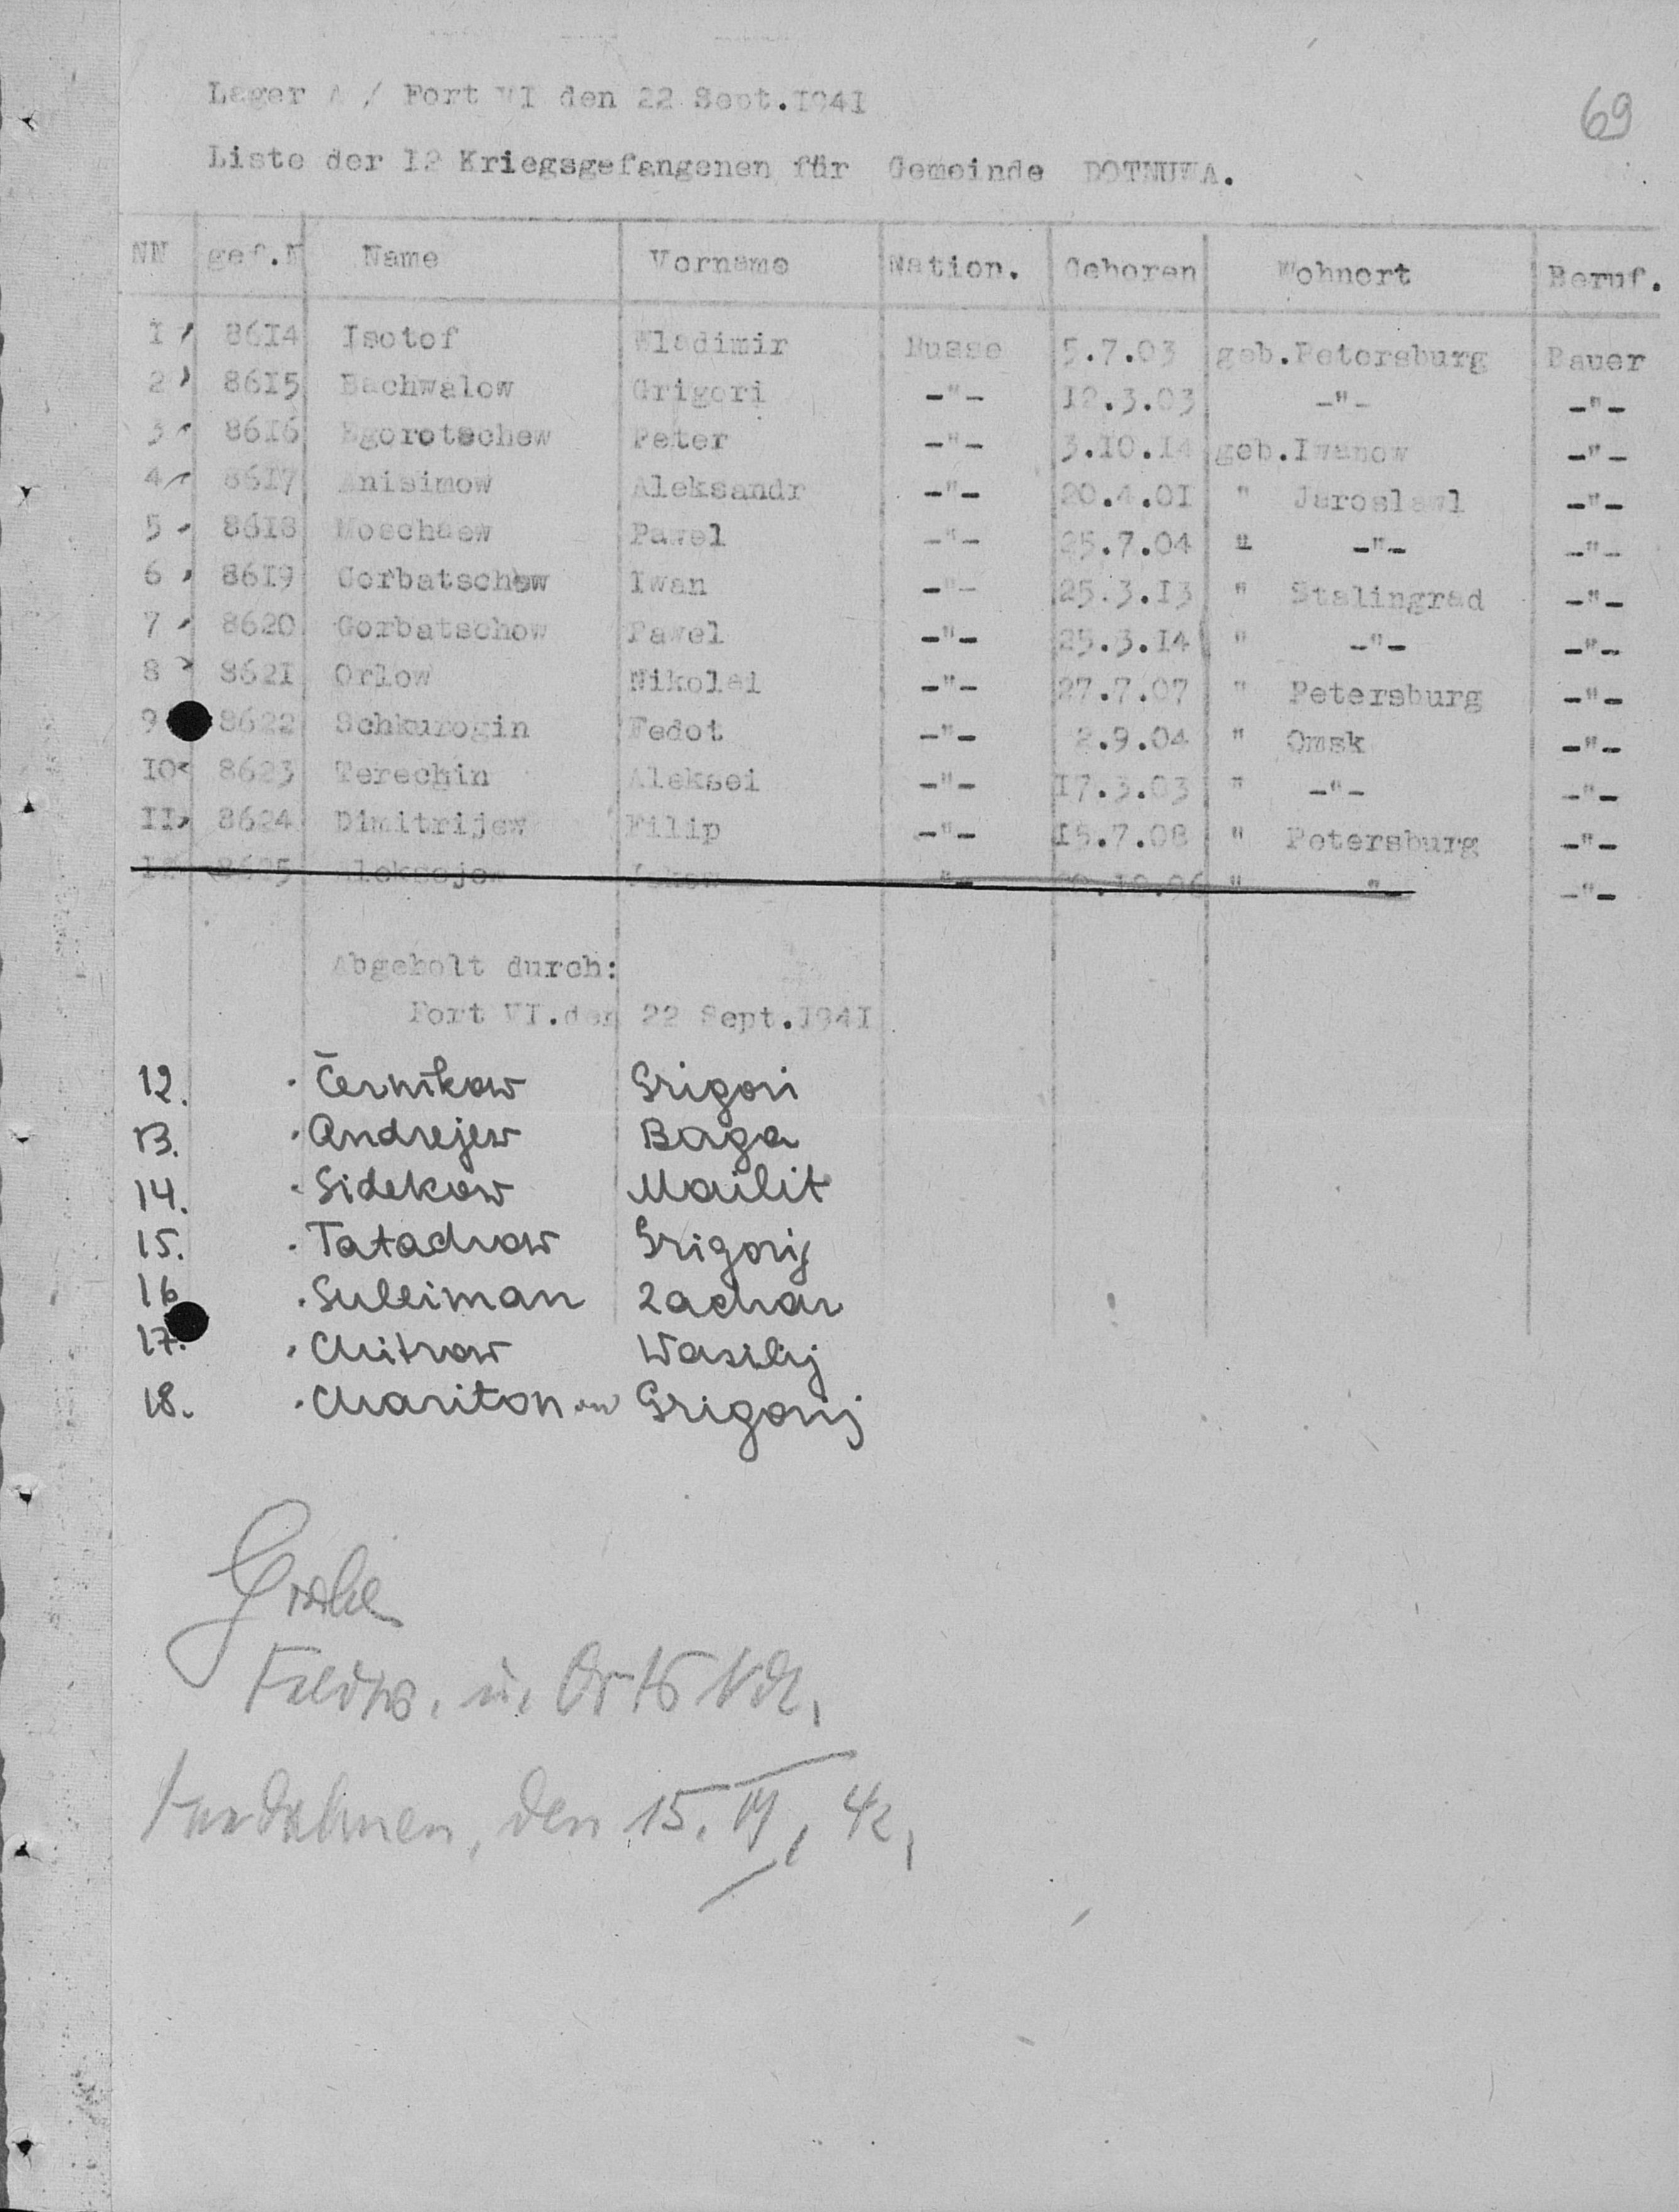 69
Lager A / Fort VI den 22 Sept.1941
Liste der 12 Kriegsgefangenen für Gemeinde DOTNUWA.
NN gef.N Name Vorname Nation. Geboren Wohnort Beruf.
1 8614 Isotof Wladimir Russe 5.7.03 geb.Petersburg Bauer
2 8615 Bachwalow Grigori -"- 12.3.03 -"- -"-
3 8616 Egorotschew Peter -"- 3.10.14 geb.Iwanow -"-
4 8617 Anisimow Aleksandr -"- 20.4.01 " Jaroslawl -"-
5 8618 Moschaew Pawel -"- 25.7.04 " -"- -"-
6 8619 Gorbatschow Iwan -"- 25.3.13 " Stalingrad -"-
7 8620 Gorbatschow Pawel -"- 25.3.14 " -"- -"-
8 8621 Orlow Nikolai -"- 27.7.07 " Petersburg -"-
9 8622 Schkurogin Fedot -"- 2.9.04 " Omsk -"-
10 8623 Terechin Aleksei -"- 17.3.03 " -"- -"-
11 8624 Dimitrijew Filip -"- 15.7.08 " Petersburg -"-
12 8625 Aleksejew "- " "- -"-
Abgeholt durch:
Fort VI.den 22 Sept.1941
12. Černikow Grigori
13. Andrejew Baga
14. Sidekow Mailit
15. Tatachow Grigorij
16 Suleiman Zachar
17. Chitrow Wasilij
18. Chariton ow Grigorij
Feldw. u.
den 15. IV, 42,